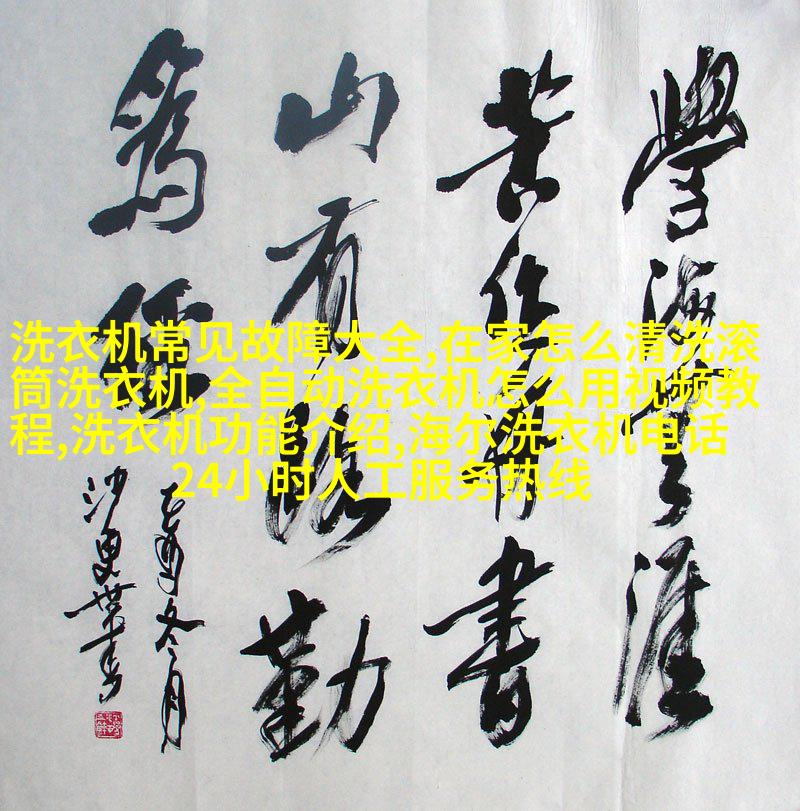 學海無涯
苦作舟書
山有路勤
為徑
乙酉冬月
洗衣机常见故障大全,在家怎么清洗滚
筒洗衣机,全自动洗衣机怎么用视频教
程,洗衣机功能介绍,海尔洗衣机电话
24小时人工服务热线